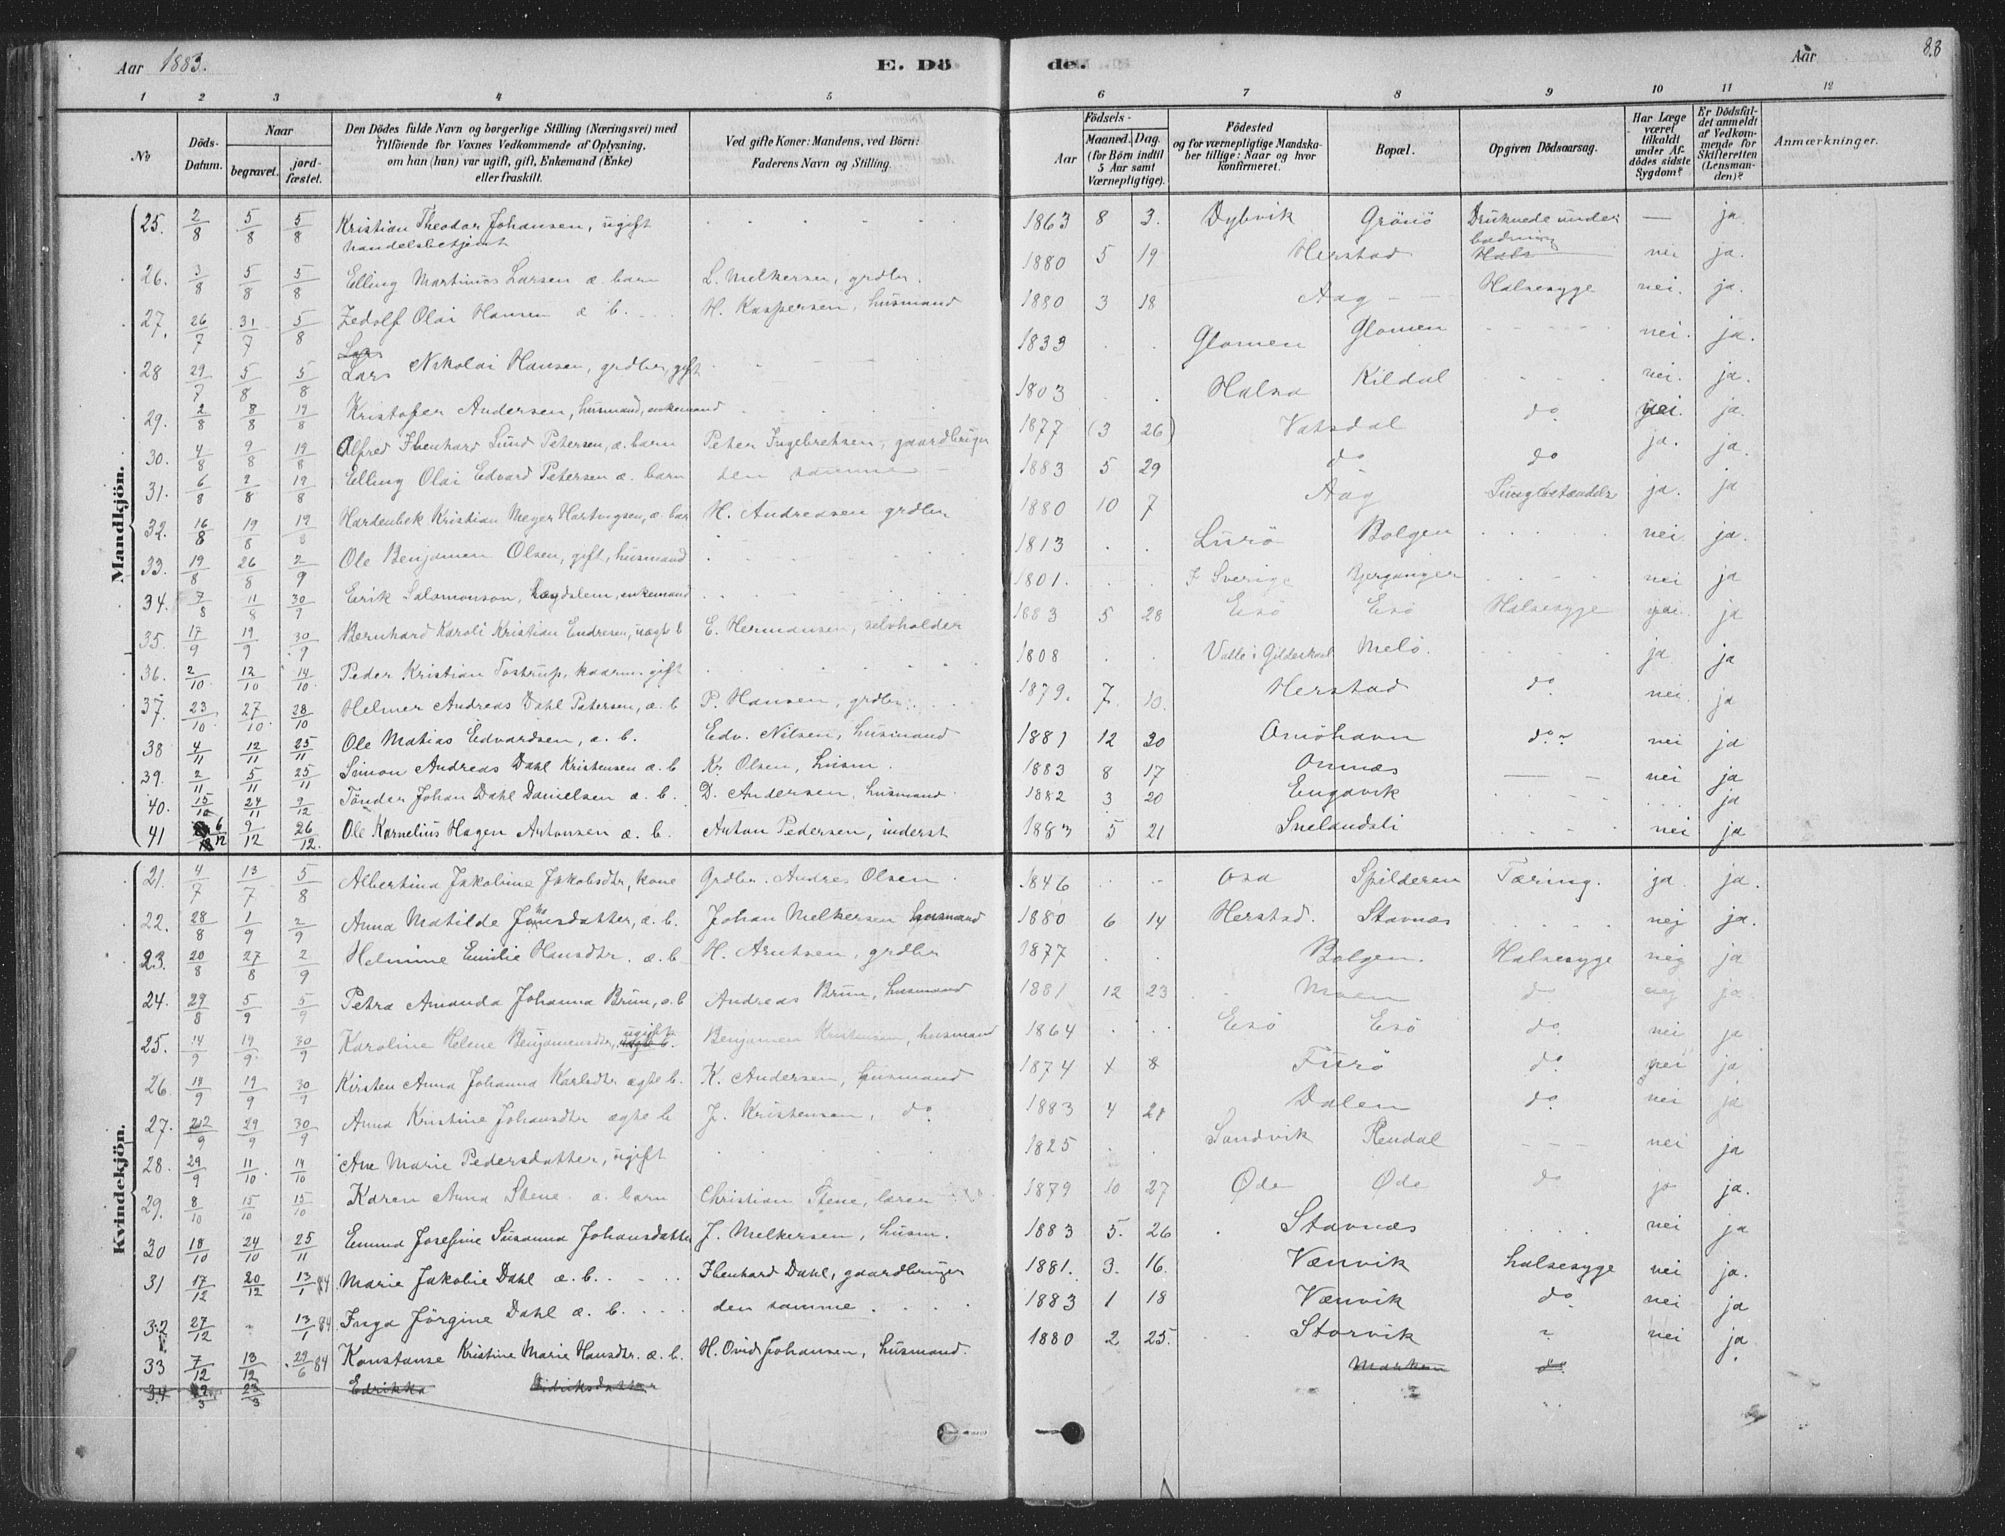 Aar 1883. E. Dö de. Aar 88
1 2 3 4 5 6 7 8 9 10 11 12
No
Döds-Datum.
Naar
begravet.
jordfæstet.
Den Dödes fulde Navn og borgerlige Stilling (Næringsvei) med Tilföiende for Voxnes Vedkommende af Oplysning, om han (hun) var ugift, gift, Enkemand (Enke) eller fraskilt.
Ved gifte Koner: Mandens, ved Börn: Faderens Navn og Stilling.
Födsels-
Aar
Maaned. Dag.
(for Börn indtil 5 Aar samt Værnepligtige).
Födested og for værnepligtige Mandskaber tillige: Naar og hvor konfirmeret.
Bopæl.
Opgiven Dödsaarsag.
Har Læge været tilkaldt under Afdödes sidste Sygdom?
Er Dödsfaldet anmeldt af Vedkommende for Skifteretten (Lensmanden)?
Anmærkninger.
Mandkjön.
25. 2/8 5/8 5/8 Kristian Theodor Johansen, ugift handelsbetjent 1863 8 3. Dybvik Grönö Druknede under badning — ja
26. 3/8 5/8 5/8 Elling Martinus Larsen æ. barn L. Melkersen, grdbr. 1880 5 19 Herstad Hals nei ja.
27. 26/7 31/7 5/8 Zedolf Olai Hansen æ b. H. Kaspersen, husmand 1880 3 18 Aag Halsesyge nei. ja.
28 29/7 5/8 5/8 Lars Nikolai Hansen, grdbr, gift 1839 Glomen Glomen nei. ja.
29. 2/8 8/8 19/8 Kristofer Andersen, husmand, enkemand 1803 Halsa Kildal nei. ja.
30. 4/8 9/8 19/8 Alfred Ibenhard Lund Petersen, æ. barn Peter Ingebretsen, gaardbruger 1877 (3 26) Vatsdal do nei. ja.
31. 6/8 9/8 19/8 Elling Olai Edvard Petersen æ. barn den samme 1883 5 29 do do ja. ja.
32. 16/8 19/8 19/8 Hardenbek Kristian Meyer Hartvigsen, æ. bar H. Andreasen grdbr 1880 10 7 Aag ja. ja
33. 19/8 26/8 2/9 Ole Benjamen Olsen, gift, husmand 1813 Lurö Bolgen nei ja.
34. 7/8 11/8 30/9 Eirik Salomonson, Lægdslem, enkemand 1801. I Sverige Bjergånger nei ja
35. 17/9 19/9 30/9 Bernhard Karoli Kristian Endresen, uægte b E. Hermansen, selvholder 1883 5 28 Esö Esö Halsesyge nei ja
36. 2/10 12/10 14/10 Peder Kristian Tostrup, kaarm. gift 1808 Valle i Gilderskaal Melö. ja ja
37. 23/10 27/10 28/10 Helmer Andreas Dahl Petersen, æ. b P. Hansen, grdbr. 1879. 7. 10. Herstad do nei ja
38 4/11 12/11 25/11 Ole Matias Edvardsen, æ. b. Edv. Nilsen, husmand 1881 12 30 Omöhavn do nei ja
39. 2/11 5/11 25/11 Simon Andreas Dahl Kristensen æ. b Kr. Olsen, husm. 1883 8 17 Onnæs nei ja
40. 15/10 24/11 9/12 Tönder Johan Dahl Danielsen æ. b. D. Andersen, husmand 1882 3 20 Engavik ja
41 6/12 9/12 26/12. Ole Kornelius Hagen Antonsen æ. b. Anton Pedersen, inderst 1883 5 21 Snelandsli nei ja
Kvindekjön.
21. 4/7 13/7 5/8 Albertina Jakobine Jakobsdtr, kone Grdbr. Andres Olsen 1846 Osa Spilderen Tæring. ja. ja.
22. 28/8 1/9 2/9 Anna Matilde Johnsdatter, æ. b. Johan Melkersen husmand 1880 6 14 Herstad. Stavnæs nej ja.
23. 20/8 27/8 2/9 Helmine Emilie Hansdtr. æ. b H. Arntsen, grdbr 1877 Bolgen. Halsesyge nej ja
24. 29/8 5/9 5/9 Petra Amanda Johanna Brun, æ. b Andreas Brun, husmand 1881 12 23 Moen do nej ja
25. 14/9 19/9 30/9 Karoline Helene Benjamensdtr, ugift Benjamen Kristensen, husmand 1864 Esö Esö do nei ja
26. 14/9 19/9 30/9 Kirsten Anna Johanna Karlsdtr ægte b. K. Andersen, husmand 1874 4 8 Furö do nei ja
27. 22/9 29/9 30/9 Anna Kristine Johansdtr ægte b J. Kristensen, do 1883 4 28 Dalen do. nei ja
28. 29/9 11/10. 14/10 Ane Marie Pedersdatter, ugift 1825 Sandvik Rendal nei ja
29. 8/10 15/10 15/10 Karen Anna Stene æ. barn Christian Stene, lærer 1879 10 27 Øde Øde do ja ja.
30 18/10 24/10 25/11 Emma Josefine Susanna Johansdatter J. Melkersen, husm. 1883 5. 26 Stavnæs nei ja
31 17/12 20/12 13/1 84 Marie Jakobie Dahl æ. b. Ibenhard Dahl, gaardbruger 1881. 3. 16. Vænvik halsesyge nei ja.
32 27/12 " 13/1 84 Inga Jörgine Dahl æ. b. den samme 1883 1 18 Vænvik do nei ja
33 7/12 13/12 29/6 84 Konstanse Kristine Marie Hansdtr. æ. b. H. Ovid Johansen, husmand. 1880 2 25. Storvik " nei ja
34 23/3 Edrikka Didriksdatter